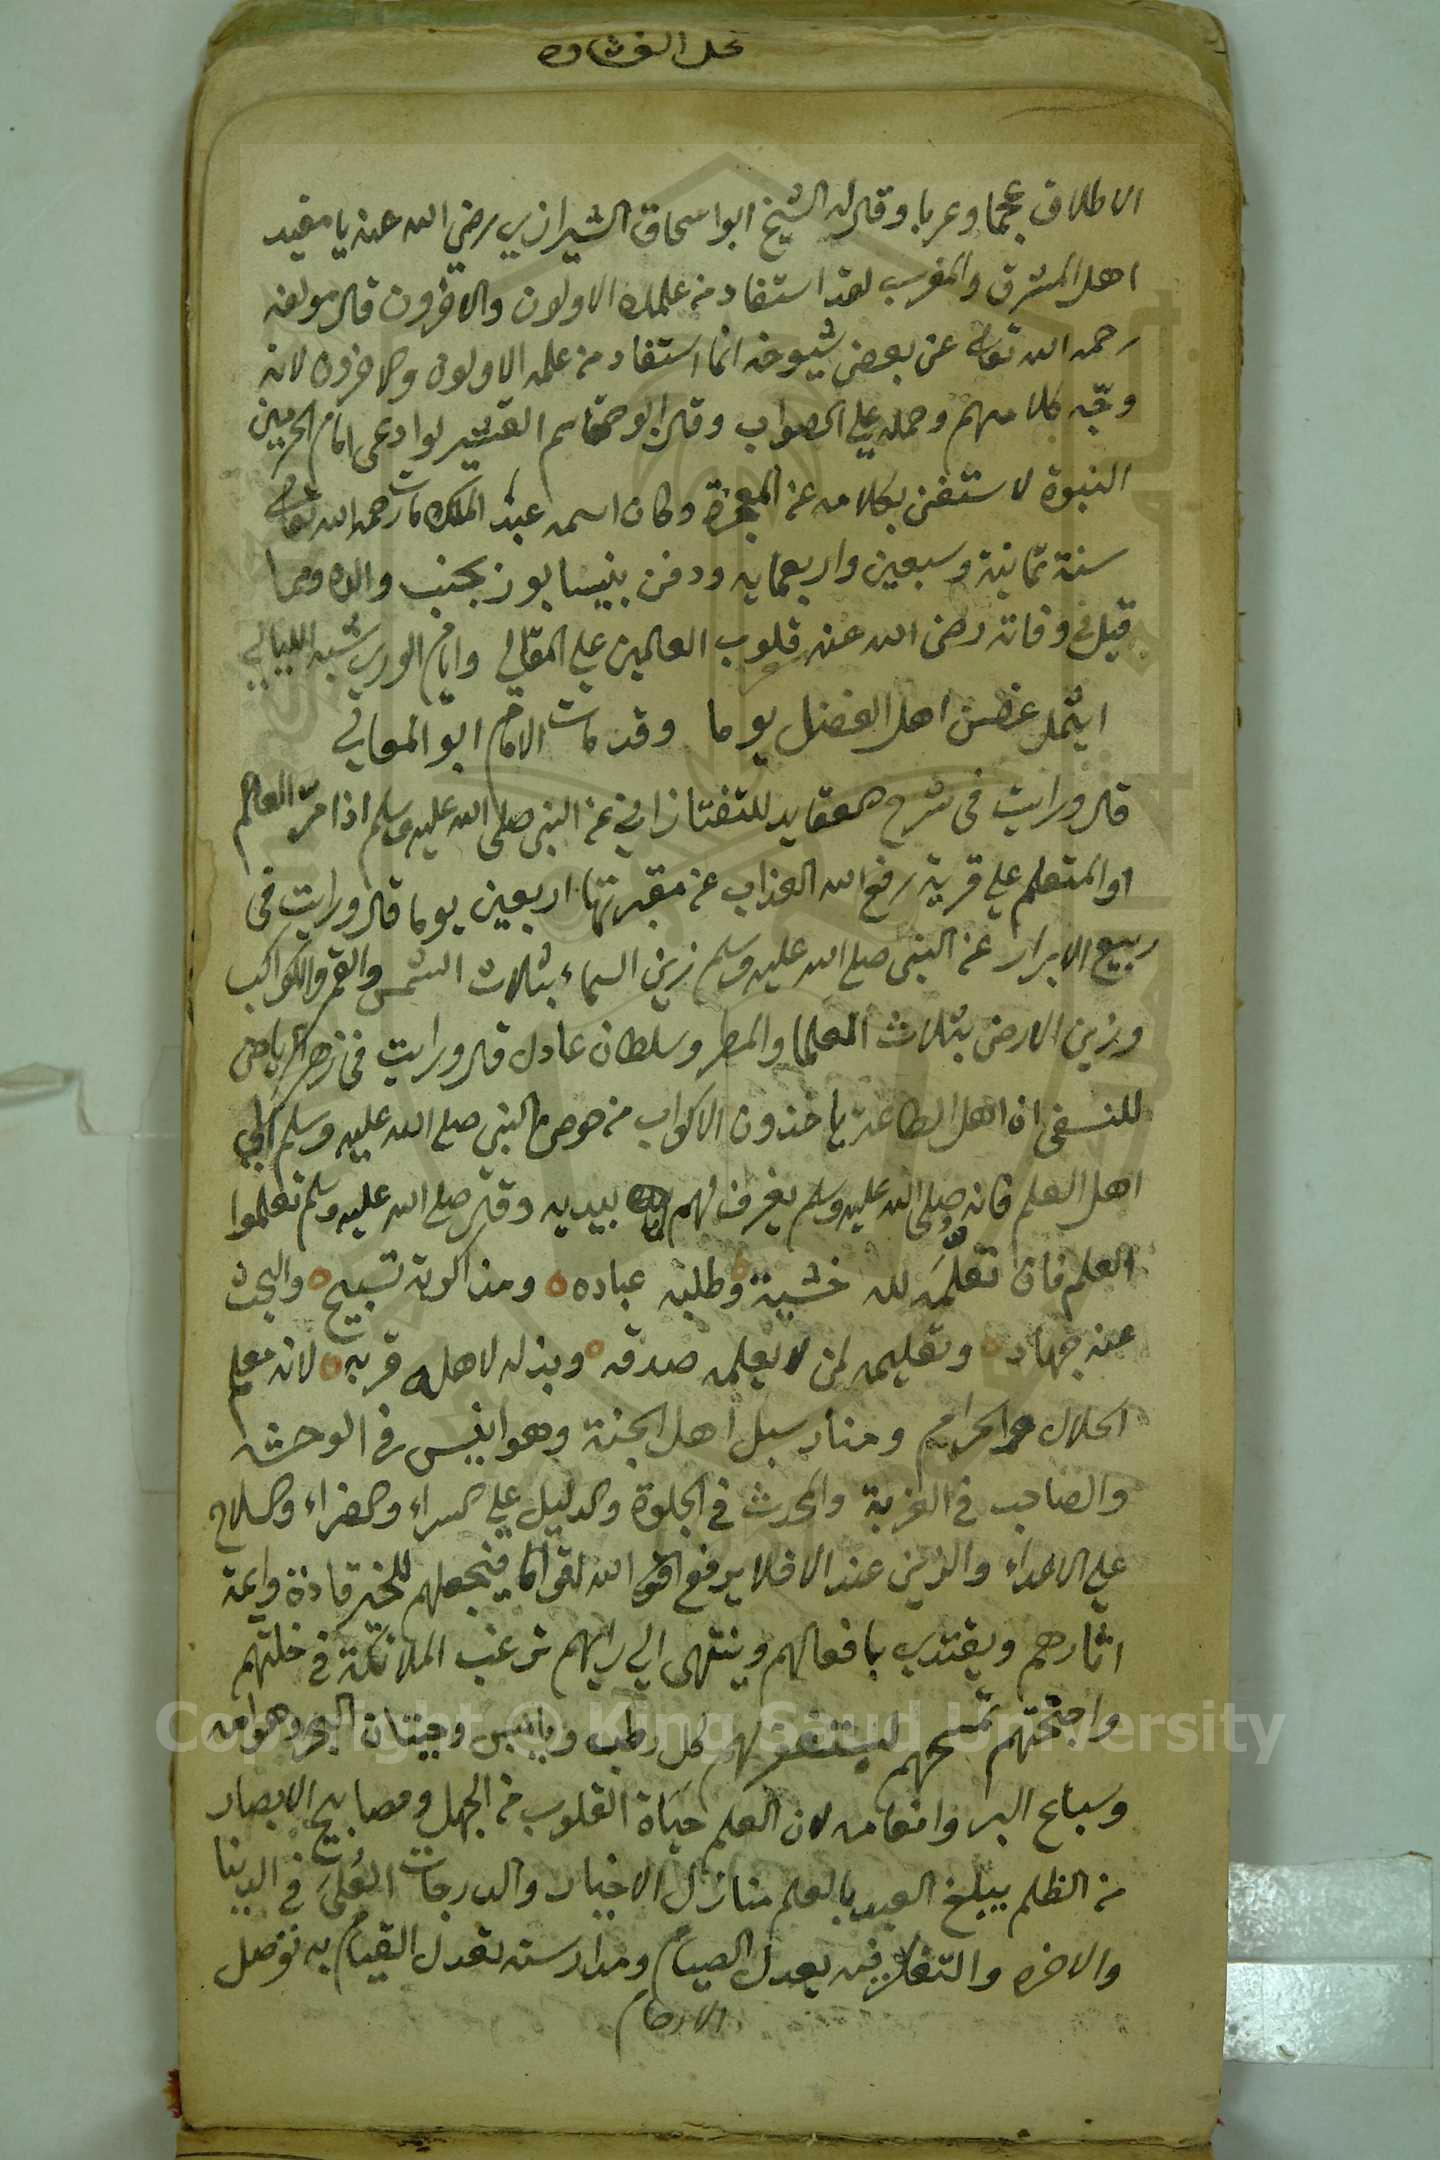 الاطلاق عجما وعربا وقال له الشيخ ابو اسحاق الشيرازي رضي الله عنه يا مفيد
اهل المشرق والمغرب لقد استفاد من علمك الاولون والاخرون قال مولفه
رحمه الله تعالى عن بعض شيوخه انما استفاد من علمه الاولون والاخرون لانه
وجّه كلامهم وحمله علي الصواب وقال ابو القاسم القشيري لو ادعى امام الحرمين
النبوة لاستغنى بكلامه عن المعجزة وكان اسمه عبد الملك مات رحمه الله تعالى
سنة ثمانية وسبعين واربعمايه ودفن بنيسابور بجنب والده ومما
قيل في وفاته رضى الله عنه قلوب العالمين علي المقالي وايام الوري شبه الليالي
ايثمل غصن اهل الفضل يوما وقد مات الامام ابو المعالي
قال ورايت فى شرح العقايد للتفتازاني عن النبى صلى الله عليه وسلم اذا مرّ العالم
او المتعلم علي قرية رفع الله العذاب عن مقبرتها اربعين يوما قال ورايت فى
ربيع الابرار عن النبى صلى الله عليه وسلم زين السماء بثلاث الشمس والقمر والكواكب
وزين الارض بثلاث العلما والمطر وسلطان عادل قال ورايت في زهر الرياض
للنسفى ان اهل الطاعة ياخذون الاكواب من حوض النبى صلى الله عليه وسلم الي
اهل العلم فانه صلى الله عليه وسلم يغرف لهم بيديه وقال صلى الله عليه وسلم تعلموا
العلم فان تعلّمَه لله خشية وطلبه عباده ومذاكرته تسبيح والبحث
عنه جهاد وتعليمه لمن لا يعلمه صدقه وبذله لاهله قربه لانه معلم
الحلال والحرام ومنار سبل اهل الجنة وهو انيس في الوحشه
والصاحب في الغربة والمحدث في الخلوة والدليل علي السراء والضراء والسلاح
علي الاعداء والزين عند الاخلا يرفع الله اقواما فيجعلهم للخير قادة وايمة
اثارهم ويقتدي بافعالهم وينتهى الي رايهم ترغب الملائكة في خلتهم
واجنحتهم تمسحهم يستغفر لهم كل رطب ويابس وحيتان البحر وهوامه
وسباع البر وانعامه لان العلم حياة القلوب من الجهل ومصابيح الابصار
من الظلم يبلغ العبد بالعلم منازل الاخيار والدرجات العُلَي في الدنيا
والاخره والتفكر فيه يعدل الصيام ومدارسته تعدل القيام به توصل
الارحام